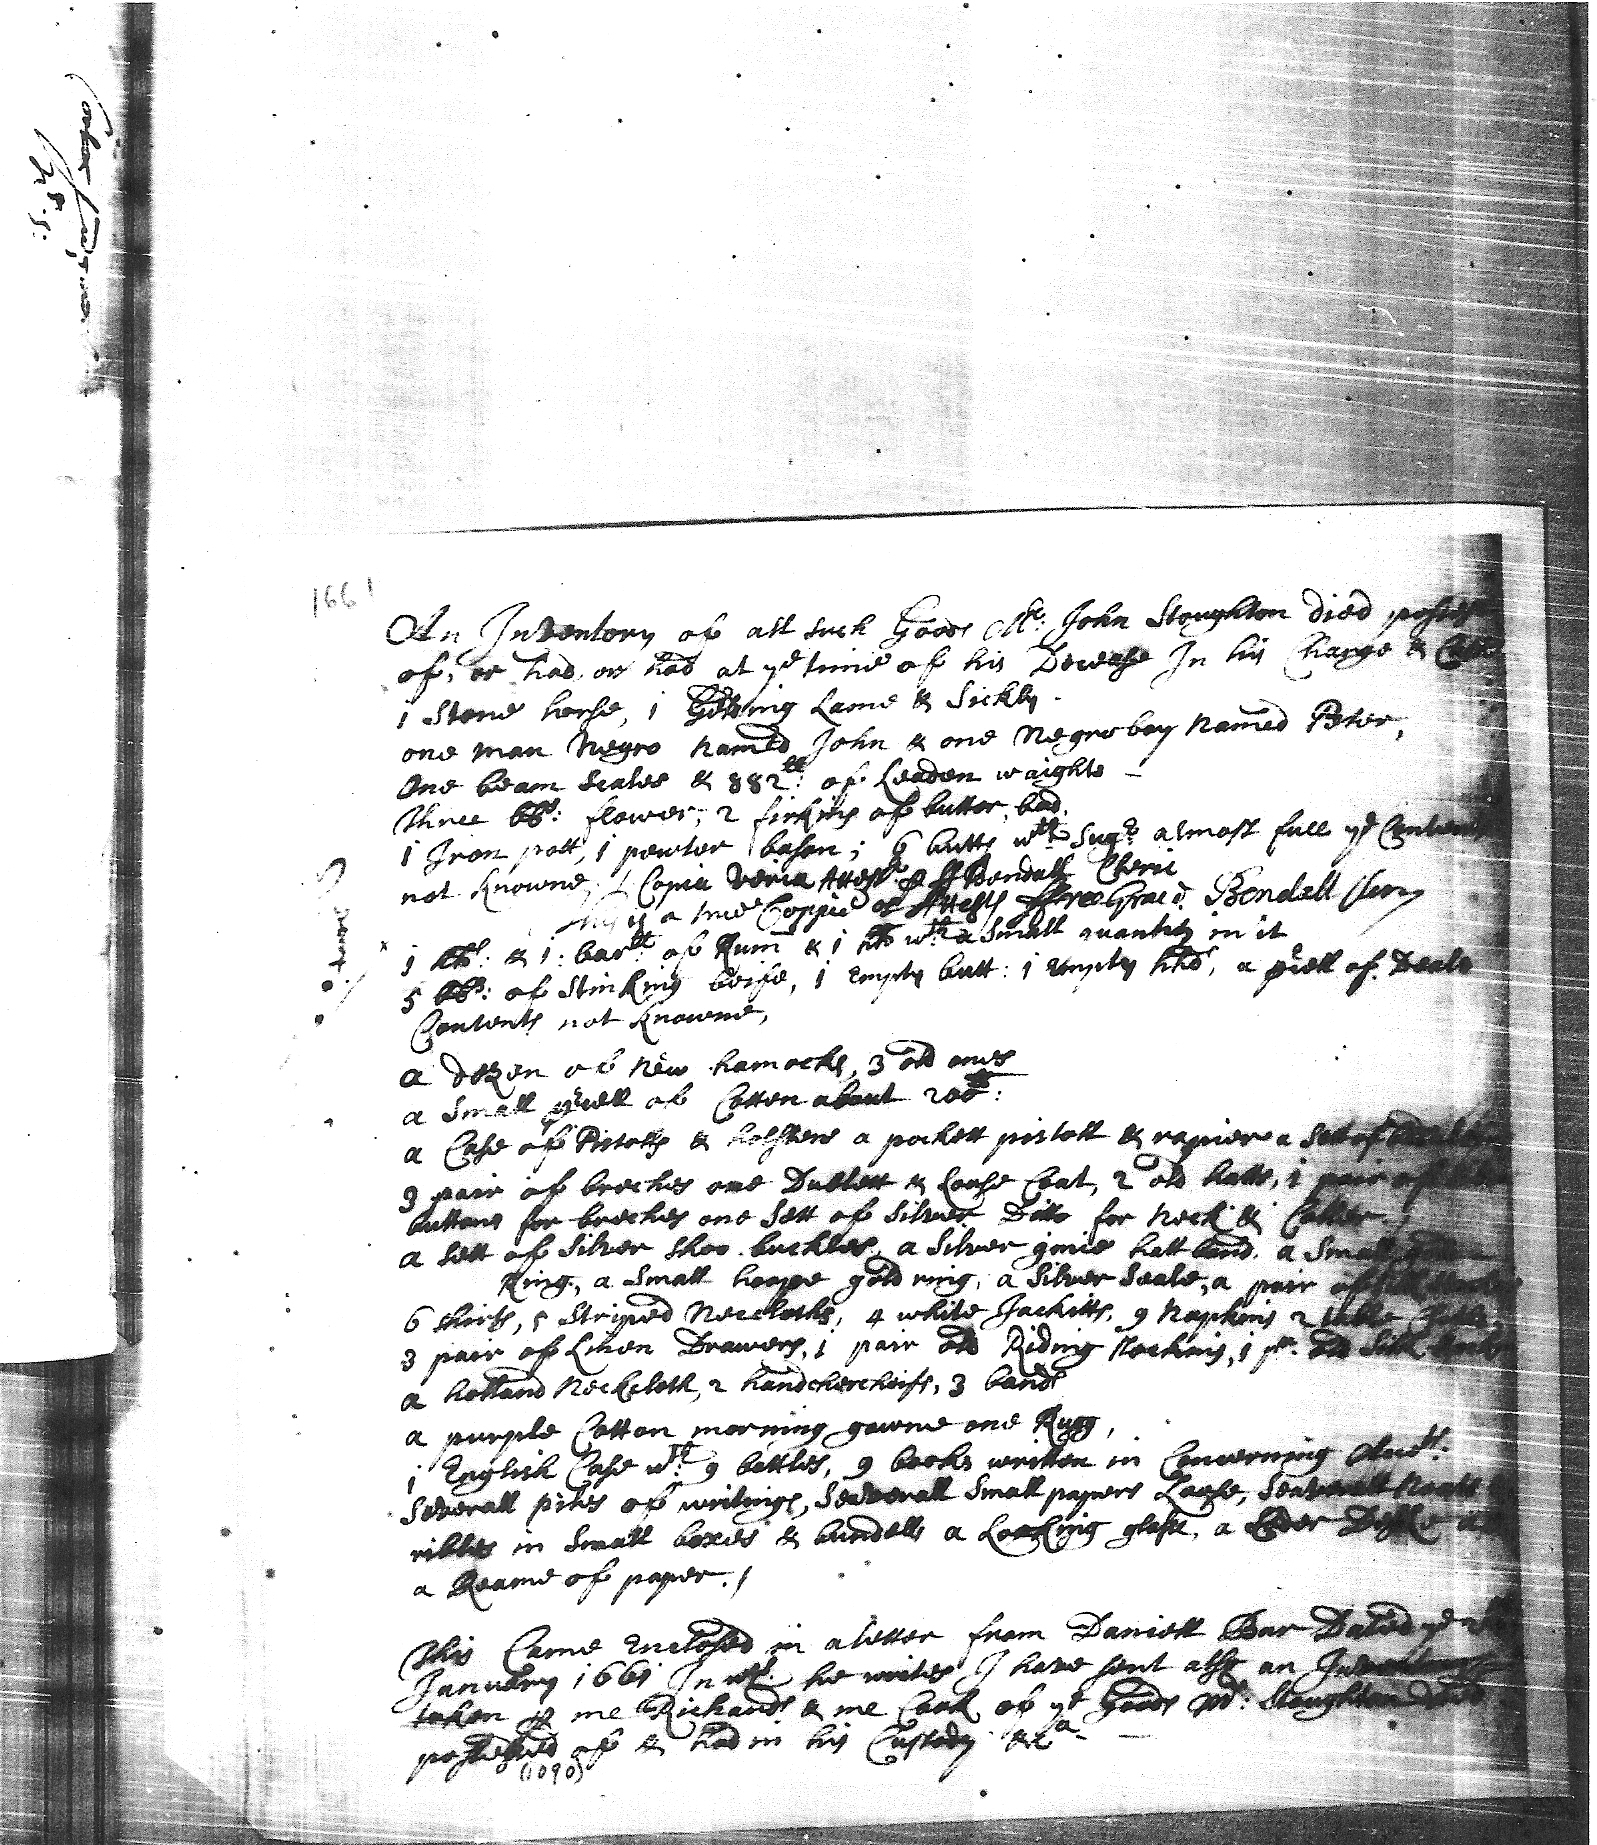 1661
An Inventory of all such Goods Mr: John Stoughton died
of, or had, or had at ye time of his Decease In his Charge &
1 Stone horse, 1 Gelding Lame & Sickly.
one man Negro named John & one Negro boy named Peter,
One beam Scales & 882ll: of Leaden waights –
Three bbs: flower; 2 firkins of butter, bad.
1 Iron pott, 1 pewter bason; 6 butts wth: Sugr almost full ye Contents
not knowne; Copia Attest Bendall Cleric
This is a true Coppie as Attests Bendall
1 hhd: & 1: barll: of Rum & 1 hhd wth a small quantity in it
5 bbs: of Stinking beife, 1 Empty butt: 1 Empty hhd, a of Deale
Contents not knowne,
a dozen of new hamocks, 3 old ones
a small of Cotten about 200ll:
a Case of Pistolls & holsters a pockett pistoll & rapier a Sett of
9 pair of breches one Dublett & Loose Coat, 2 old hatts, 1 pair of
buttons for breches one Sett of Silver Ditto for Neck & Coller.
a Sett of Silver Shoo buckles, a Silver hatt band. a Small
Ring, a Small hoope gold ring, a Silver Seale, a pair of
6 shirts, 5 Striped Neccloths, 4 white Jackitts, 9 Napkins 2 table
3 pair of Linen Drawers, 1 pair old Riding Stockins, 1 pr. old Silk
a holland Neckcloth, 2 handchercheifs, 3 bands
a purple Cotton morning gowne one Rugg,
1 English Case wth: 9 bottles, 9 books written in Concerning
Severall piles of writings, Severall Small papers Loose, Severall
in Small boxes & bundells a Looking glass, a Deske
a Reame of paper.
This Came Enclosed in a letter from Daniell Dated ye
January 1661 In wch: he writes I have sent also an Inventory
taken p me Richards & me Cook of ye Goods Mr: Stoughton
possessed of & had in his Custody &ca –
(1090)